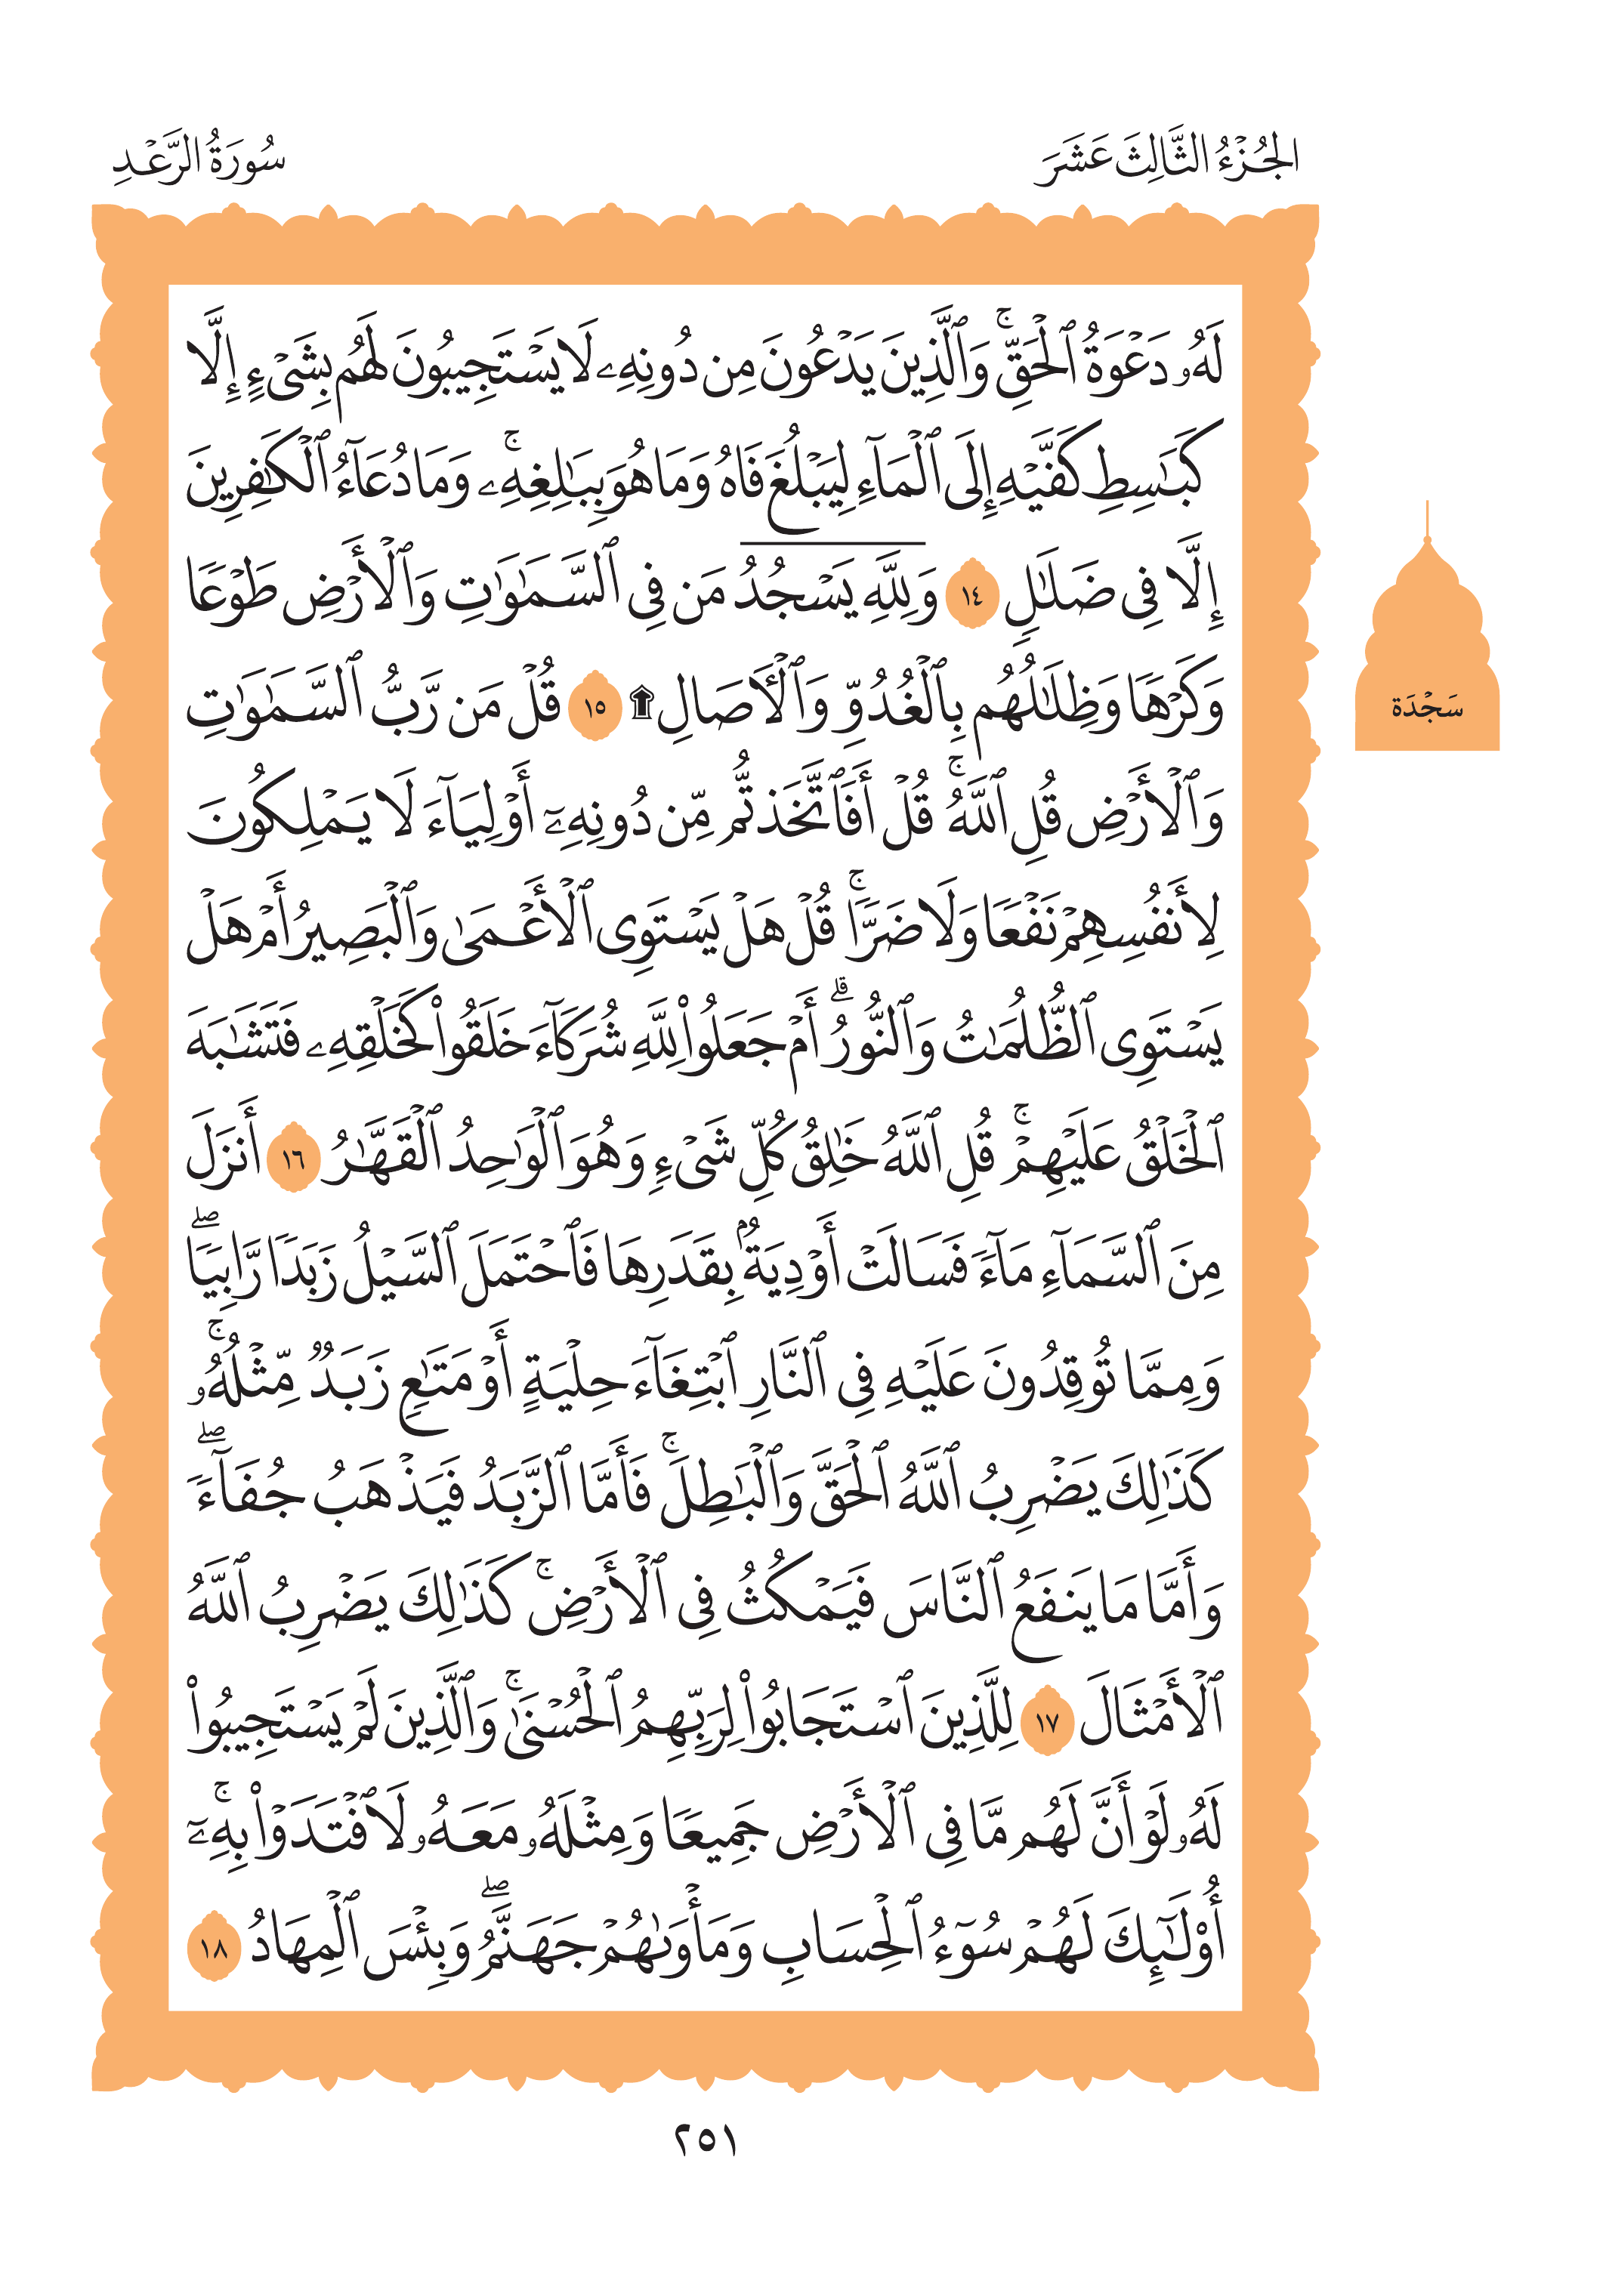 الجُزْءُ الثَّالِثَ عَشَرَ
سُورَةُ الرَّعْدِ
لَهُۥ دَعْوَةُ ٱلْحَقِّۚ وَٱلَّذِينَ يَدْعُونَ مِن دُونِهِۦ لَا يَسْتَجِيبُونَ لَهُم بِشَىْءٍ إِلَّا
كَبَـٰسِطِ كَفَّيْهِ إِلَى ٱلْمَآءِ لِيَبْلُغَ فَاهُ وَمَا هُوَ بِبَـٰلِغِهِۦۚ وَمَا دُعَآءُ ٱلْكَـٰفِرِينَ
إِلَّا فِى ضَلَـٰلٍ ١٤ وَلِلَّهِ يَسْجُدُ مَن فِى ٱلسَّمَـٰوَٰتِ وَٱلْأَرْضِ طَوْعًا
وَكَرْهًا وَظِلَـٰلُهُم بِٱلْغُدُوِّ وَٱلْـَٔاصَالِ۩ ١٥ قُلْ مَن رَّبُّ ٱلسَّمَـٰوَٰتِ
وَٱلْأَرْضِ قُلِ ٱللَّهُۚ قُلْ أَفَٱتَّخَذتُّم مِّن دُونِهِۦٓ أَوْلِيَآءَ لَا يَمْلِكُونَ
لِأَنفُسِهِمْ نَفْعًا وَلَا ضَرًّاۚ قُلْ هَلْ يَسْتَوِى ٱلْأَعْمَىٰ وَٱلْبَصِيرُ أَمْ هَلْ
يَسْتَوِى ٱلظُّلُمَـٰتُ وَٱلنُّورُۗ أَمْ جَعَلُوا۟ لِلَّهِ شُرَكَآءَ خَلَقُوا۟ كَخَلْقِهِۦ فَتَشَـٰبَهَ
ٱلْخَلْقُ عَلَيْهِمْۚ قُلِ ٱللَّهُ خَـٰلِقُ كُلِّ شَىْءٍ وَهُوَ ٱلْوَٰحِدُ ٱلْقَهَّـٰرُ ١٦ أَنزَلَ
مِنَ ٱلسَّمَآءِ مَآءً فَسَالَتْ أَوْدِيَةٌۢ بِقَدَرِهَا فَٱحْتَمَلَ ٱلسَّيْلُ زَبَدًا رَّابِيًاۖ
وَمِمَّا تُوقِدُونَ عَلَيْهِ فِى ٱلنَّارِ ٱبْتِغَآءَ حِلْيَةٍ أَوْ مَتَـٰعٍ زَبَدٌ مِّثْلُهُۥۚ
كَذَٰلِكَ يَضْرِبُ ٱللَّهُ ٱلْحَقَّ وَٱلْبَـٰطِلَۚ فَأَمَّا ٱلزَّبَدُ فَيَذْهَبُ جُفَآءًۖ
وَأَمَّا مَا يَنفَعُ ٱلنَّاسَ فَيَمْكُثُ فِى ٱلْأَرْضِۚ كَذَٰلِكَ يَضْرِبُ ٱللَّهُ
ٱلْأَمْثَالَ ١٧ لِلَّذِينَ ٱسْتَجَابُوا۟ لِرَبِّهِمُ ٱلْحُسْنَىٰۚ وَٱلَّذِينَ لَمْ يَسْتَجِيبُوا۟
لَهُۥ لَوْ أَنَّ لَهُم مَّا فِى ٱلْأَرْضِ جَمِيعًا وَمِثْلَهُۥ مَعَهُۥ لَٱفْتَدَوْا۟ بِهِۦٓۚ
أُو۟لَـٰٓئِكَ لَهُمْ سُوٓءُ ٱلْحِسَابِ وَمَأْوَىٰهُمْ جَهَنَّمُۖ وَبِئْسَ ٱلْمِهَادُ ١٨
سَجْدَة
٢٥١